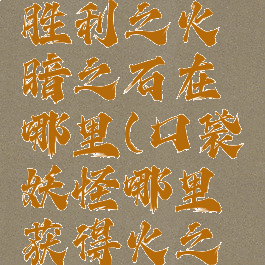 胜利之火
暗之石在
哪里(口袋
妖怪哪里
获得火之